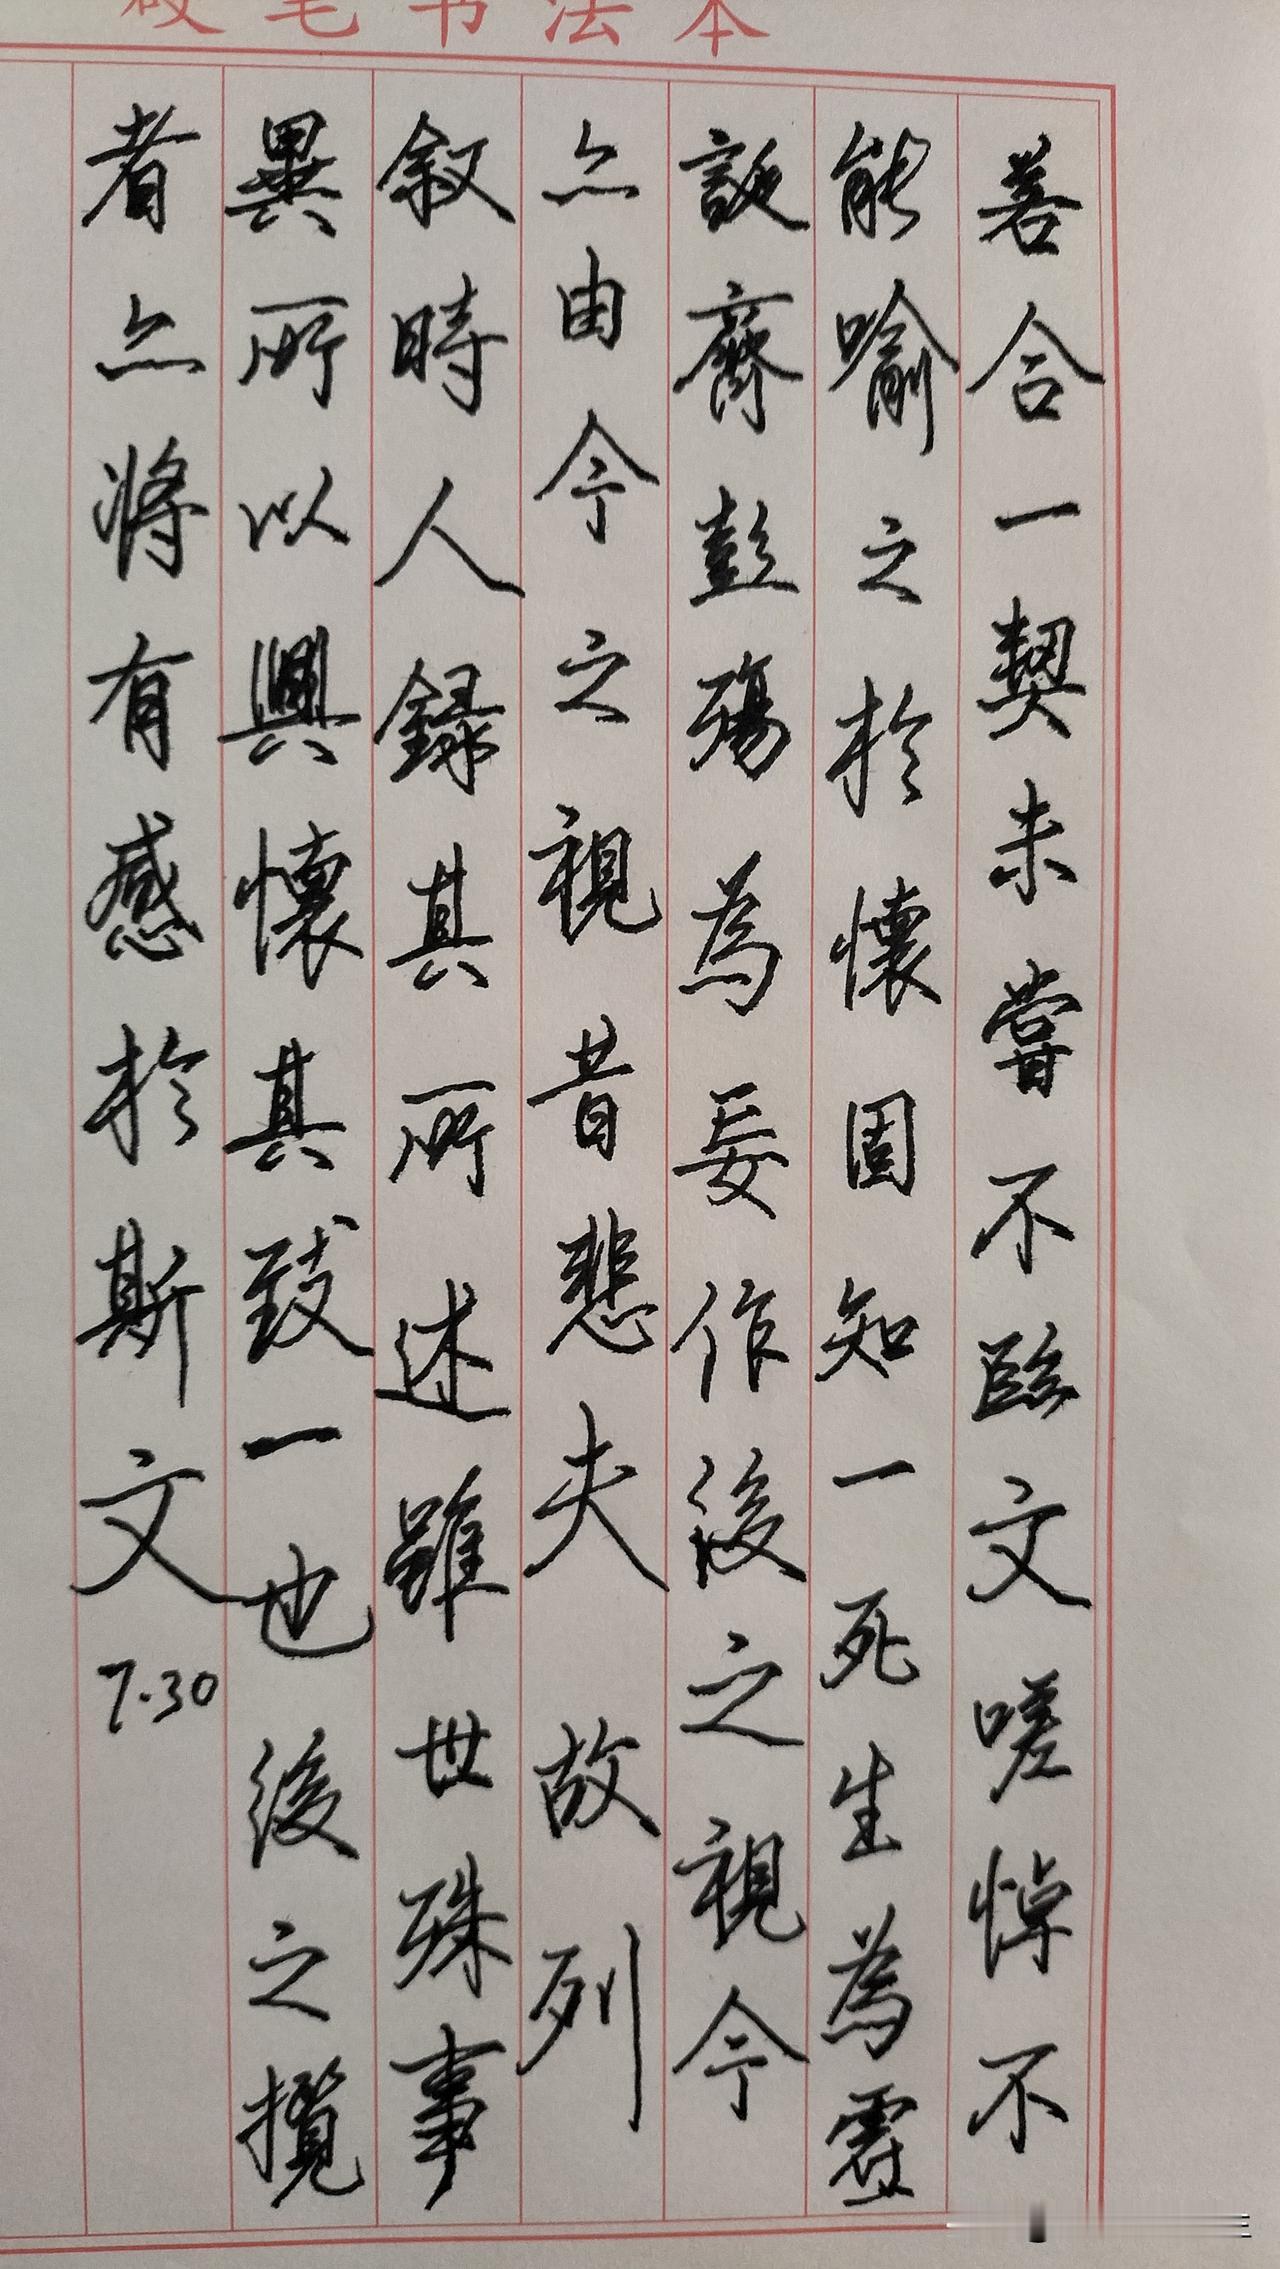 硬笔书法本
若合一契未嘗不臨文嗟悼不
能喻之於懷固知一死生為虛
誕齊彭殤為妄作後之視今
亦由今之視昔悲夫故列
叙時人録其所述雖世殊事
異所以興懷其致一也後之攬
者亦將有感於斯文7.30